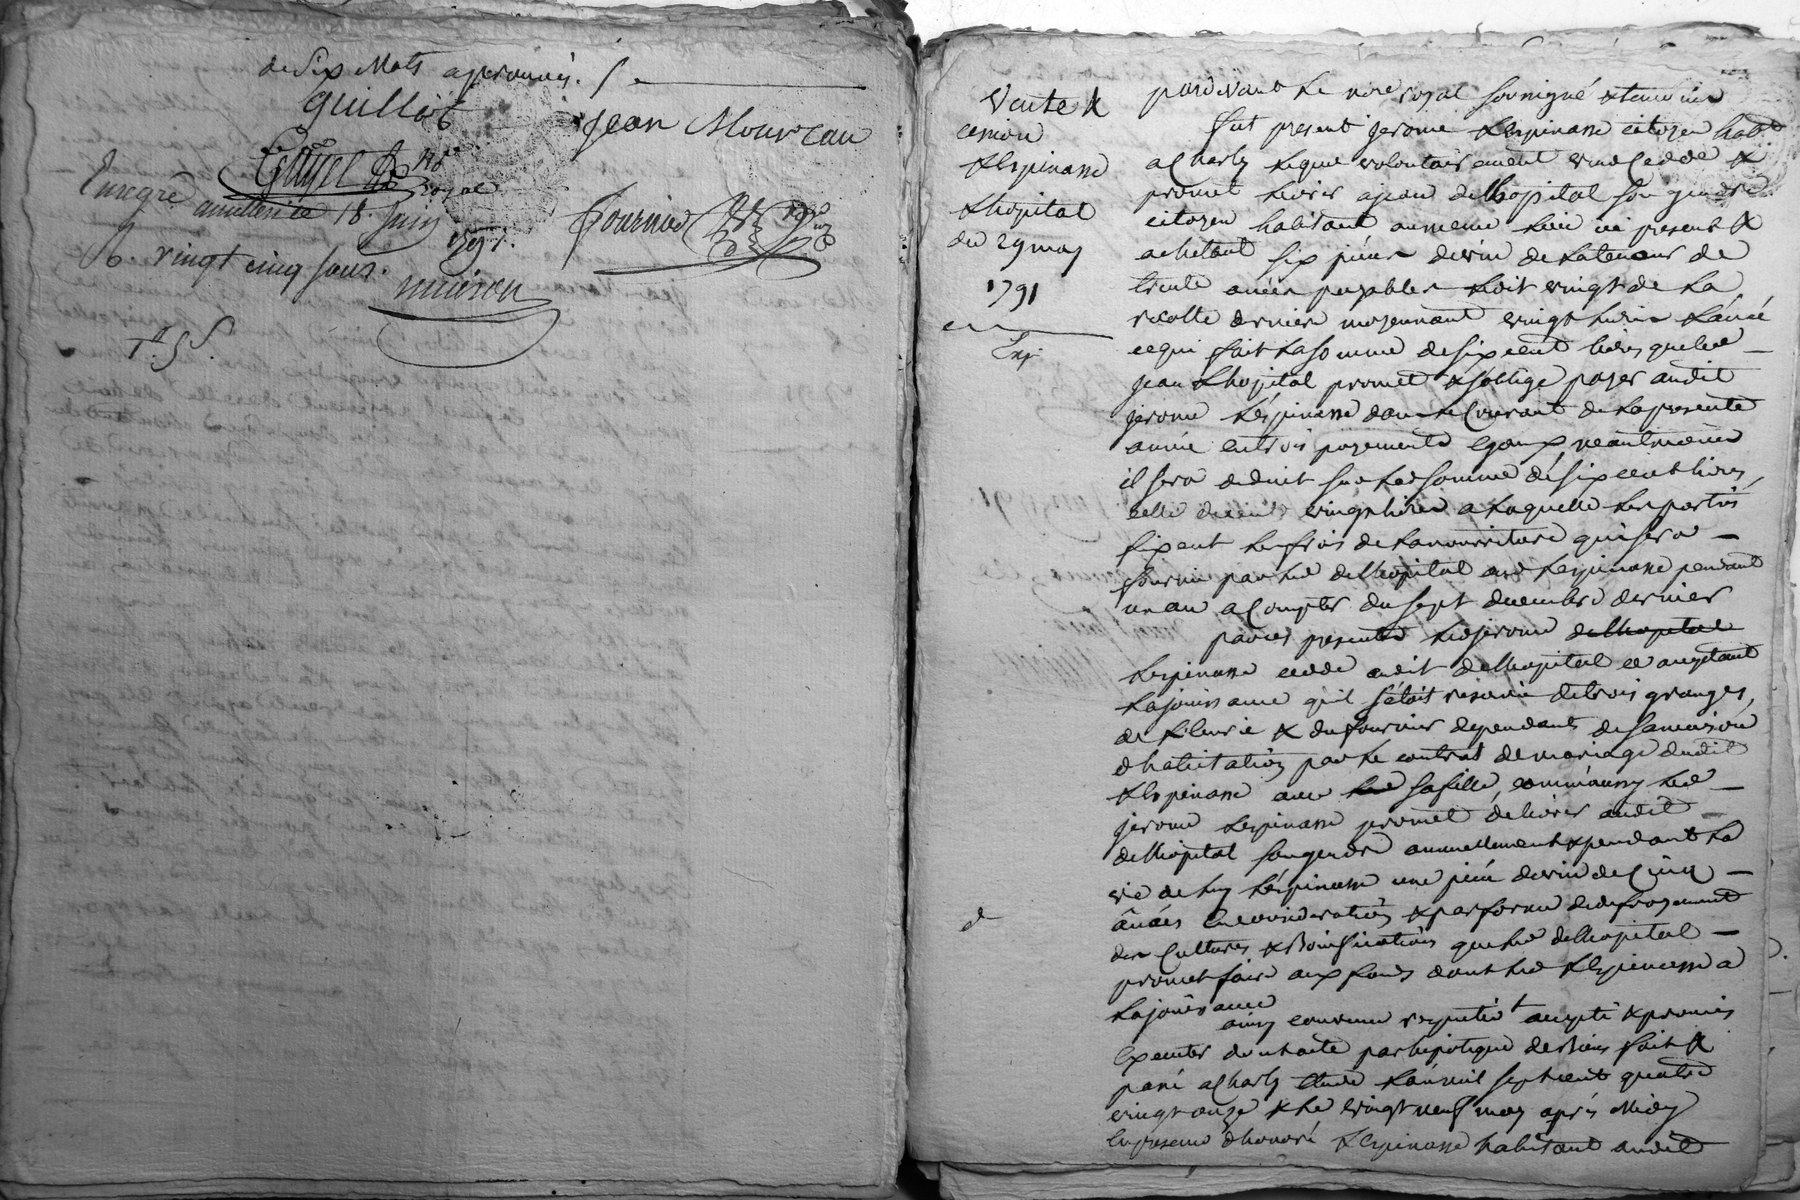 de Six Mots aprouvés. /.
guillot
Jean Moureau
royal
Enregré a millery le 18. Juin
1791.
R. vingt cinq sous.
fournier
Vente &
cession
Lespinasse
Lhopital
du 29 may
1791
Exp.
pardevant Le nore royal soussigné & temoins
fut present jerome Lespinasse citoyen habt
a Charly Lequel volontairement vend Cedde &
promet livrer a jean delhopital son gendre
citoyen habitant au meme lieu ici present &
achetant six pieces de vin de la teneur de
trente anées payables soit vingt de La
recolte derniere moyennant vingt livres L'anée
ce qui fait La somme de six cent livres que led
jean Lhopital promet & s'oblige payer audit
jerome Lespinasse dans le Courant de La presente
année en trois payements egaux, neantmoins
il sera deduit sur lad somme de six cent livres,
celle de cent vingt livres a Laquelle Les parties
fixent Les frois de La nourriture qui sera
fournie par led delhopital aud Lespinasse pendant
un an a Compter du sept decembre dernier
par ces presentes led jerome delhopital
Lespinasse cedde audit delhopital ce acceptant
La jouissance qu'il s'etoit reservée de trois granges,
de L'ecurie & du fournier dependants de sa maison
d'habitation par Le contrat de mariage dudit
Lespinasse avec sa fille, comm'aussy led
jerome Lespinasse promet de livrer audit
delhopital son gendre annuellement & pendant La
vie de luy Lespinasse une piece de vin de Cinq
anées En consideration & par forme de defrayement
des Cultures & Bonifications que led delhopital
promet faire aux fonds dont led Lespinasse a
La jouissance
de
ainsy convenu respectivt accepté & promis
Executer dont acte par hipoteque de Biens fait &
passé a Charly Etude L'an mil sept cent quatre
vingt onze & Le vingt neuf may après Midy
En presence d'honoré Lespinasse habitant audit